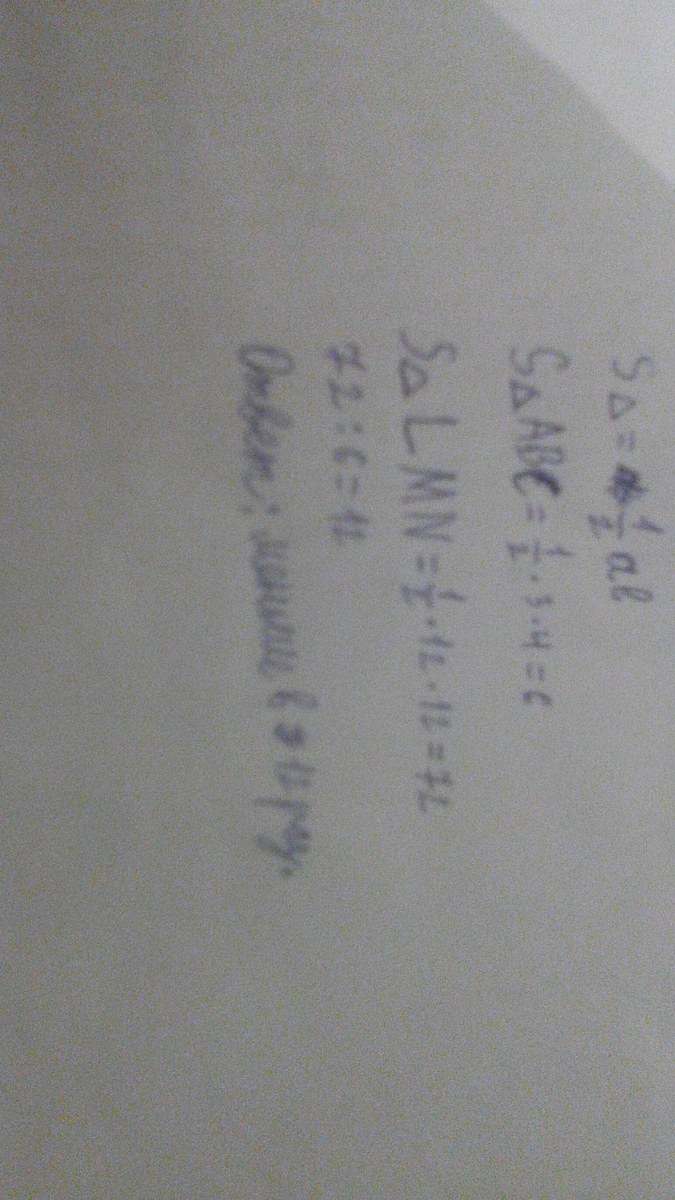 S△ = 1/2 ab
S△ABC = 1/2 · 3 · 4 = 6
S△LMN = 1/2 · 12 · 12 = 72
72 : 6 = 12
Ответ: меньше в 12 раз.